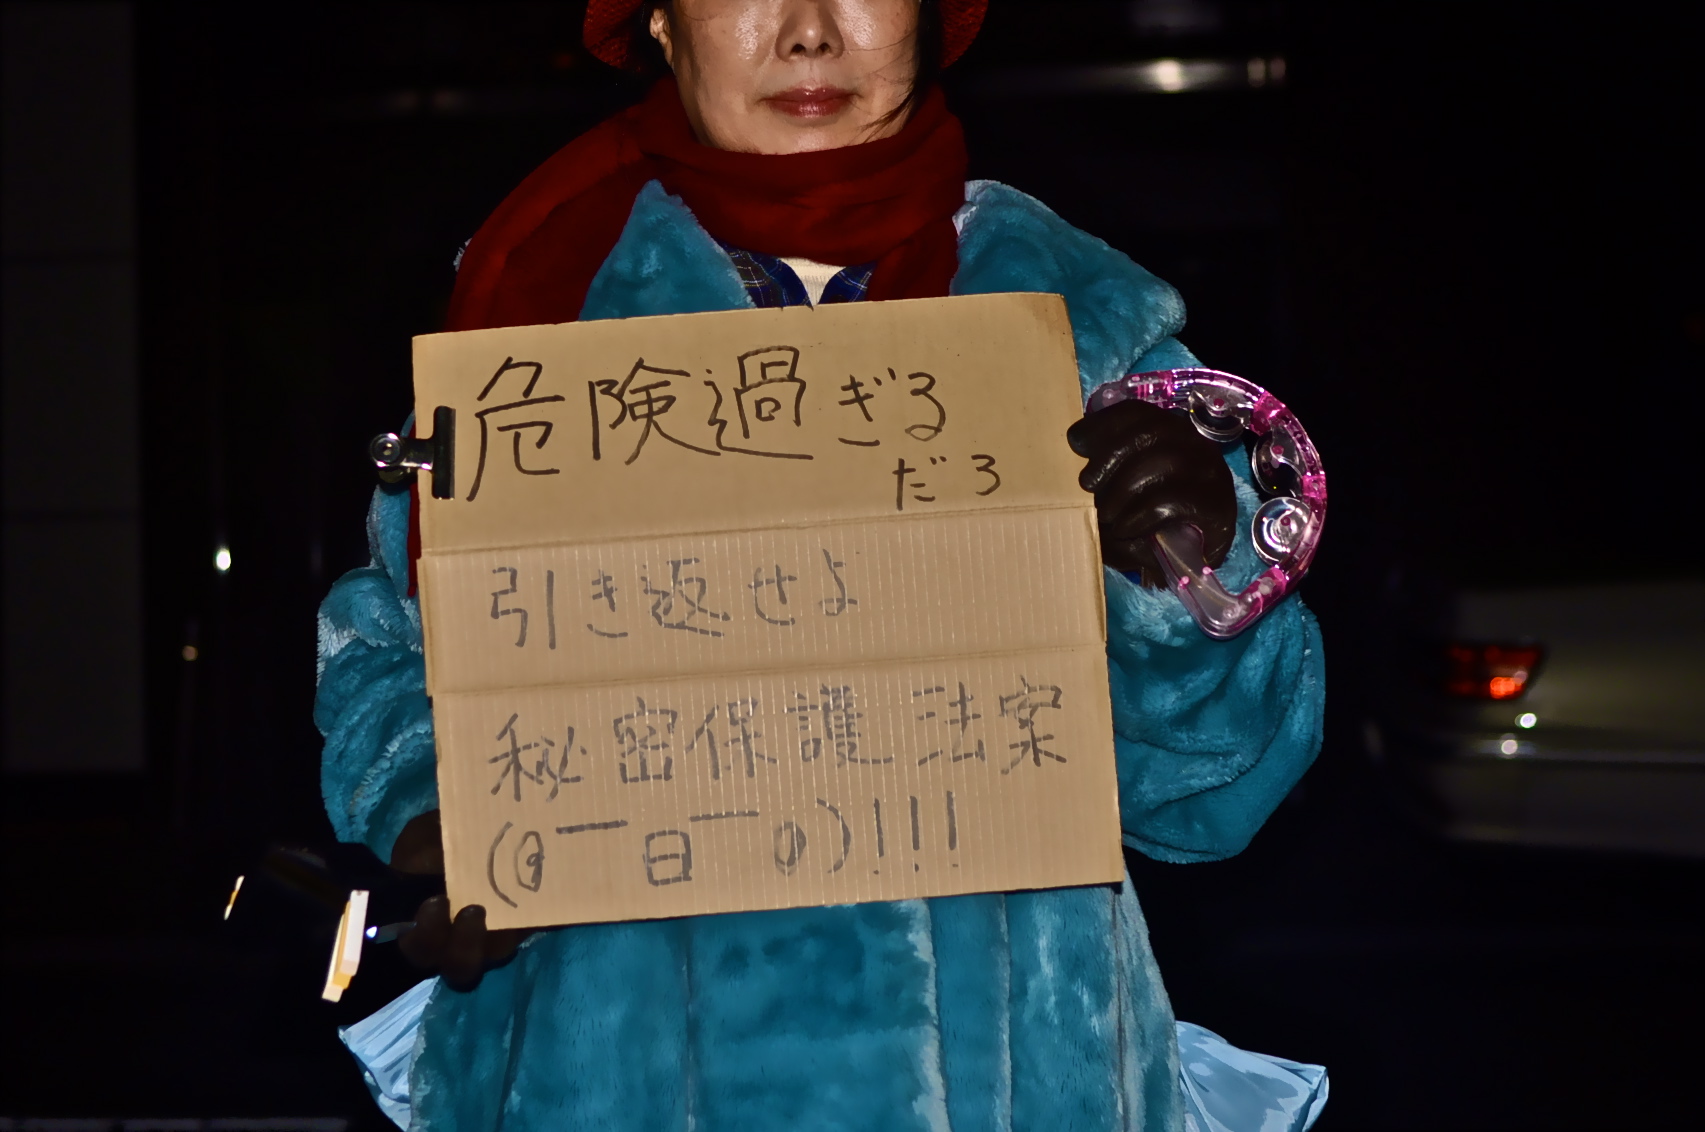 危険過ぎる
だろ
引き返せよ
秘密保護法案
(@￣日￣@)!!!